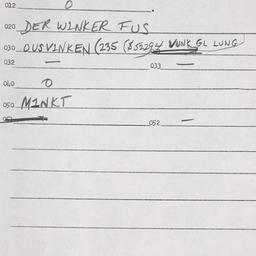 012 0
020 DER WINKER FUS
030 OUSVINKEN (235 VUNK GL LUNG
032 — 033 —
040 0
050 MINKT
052 —